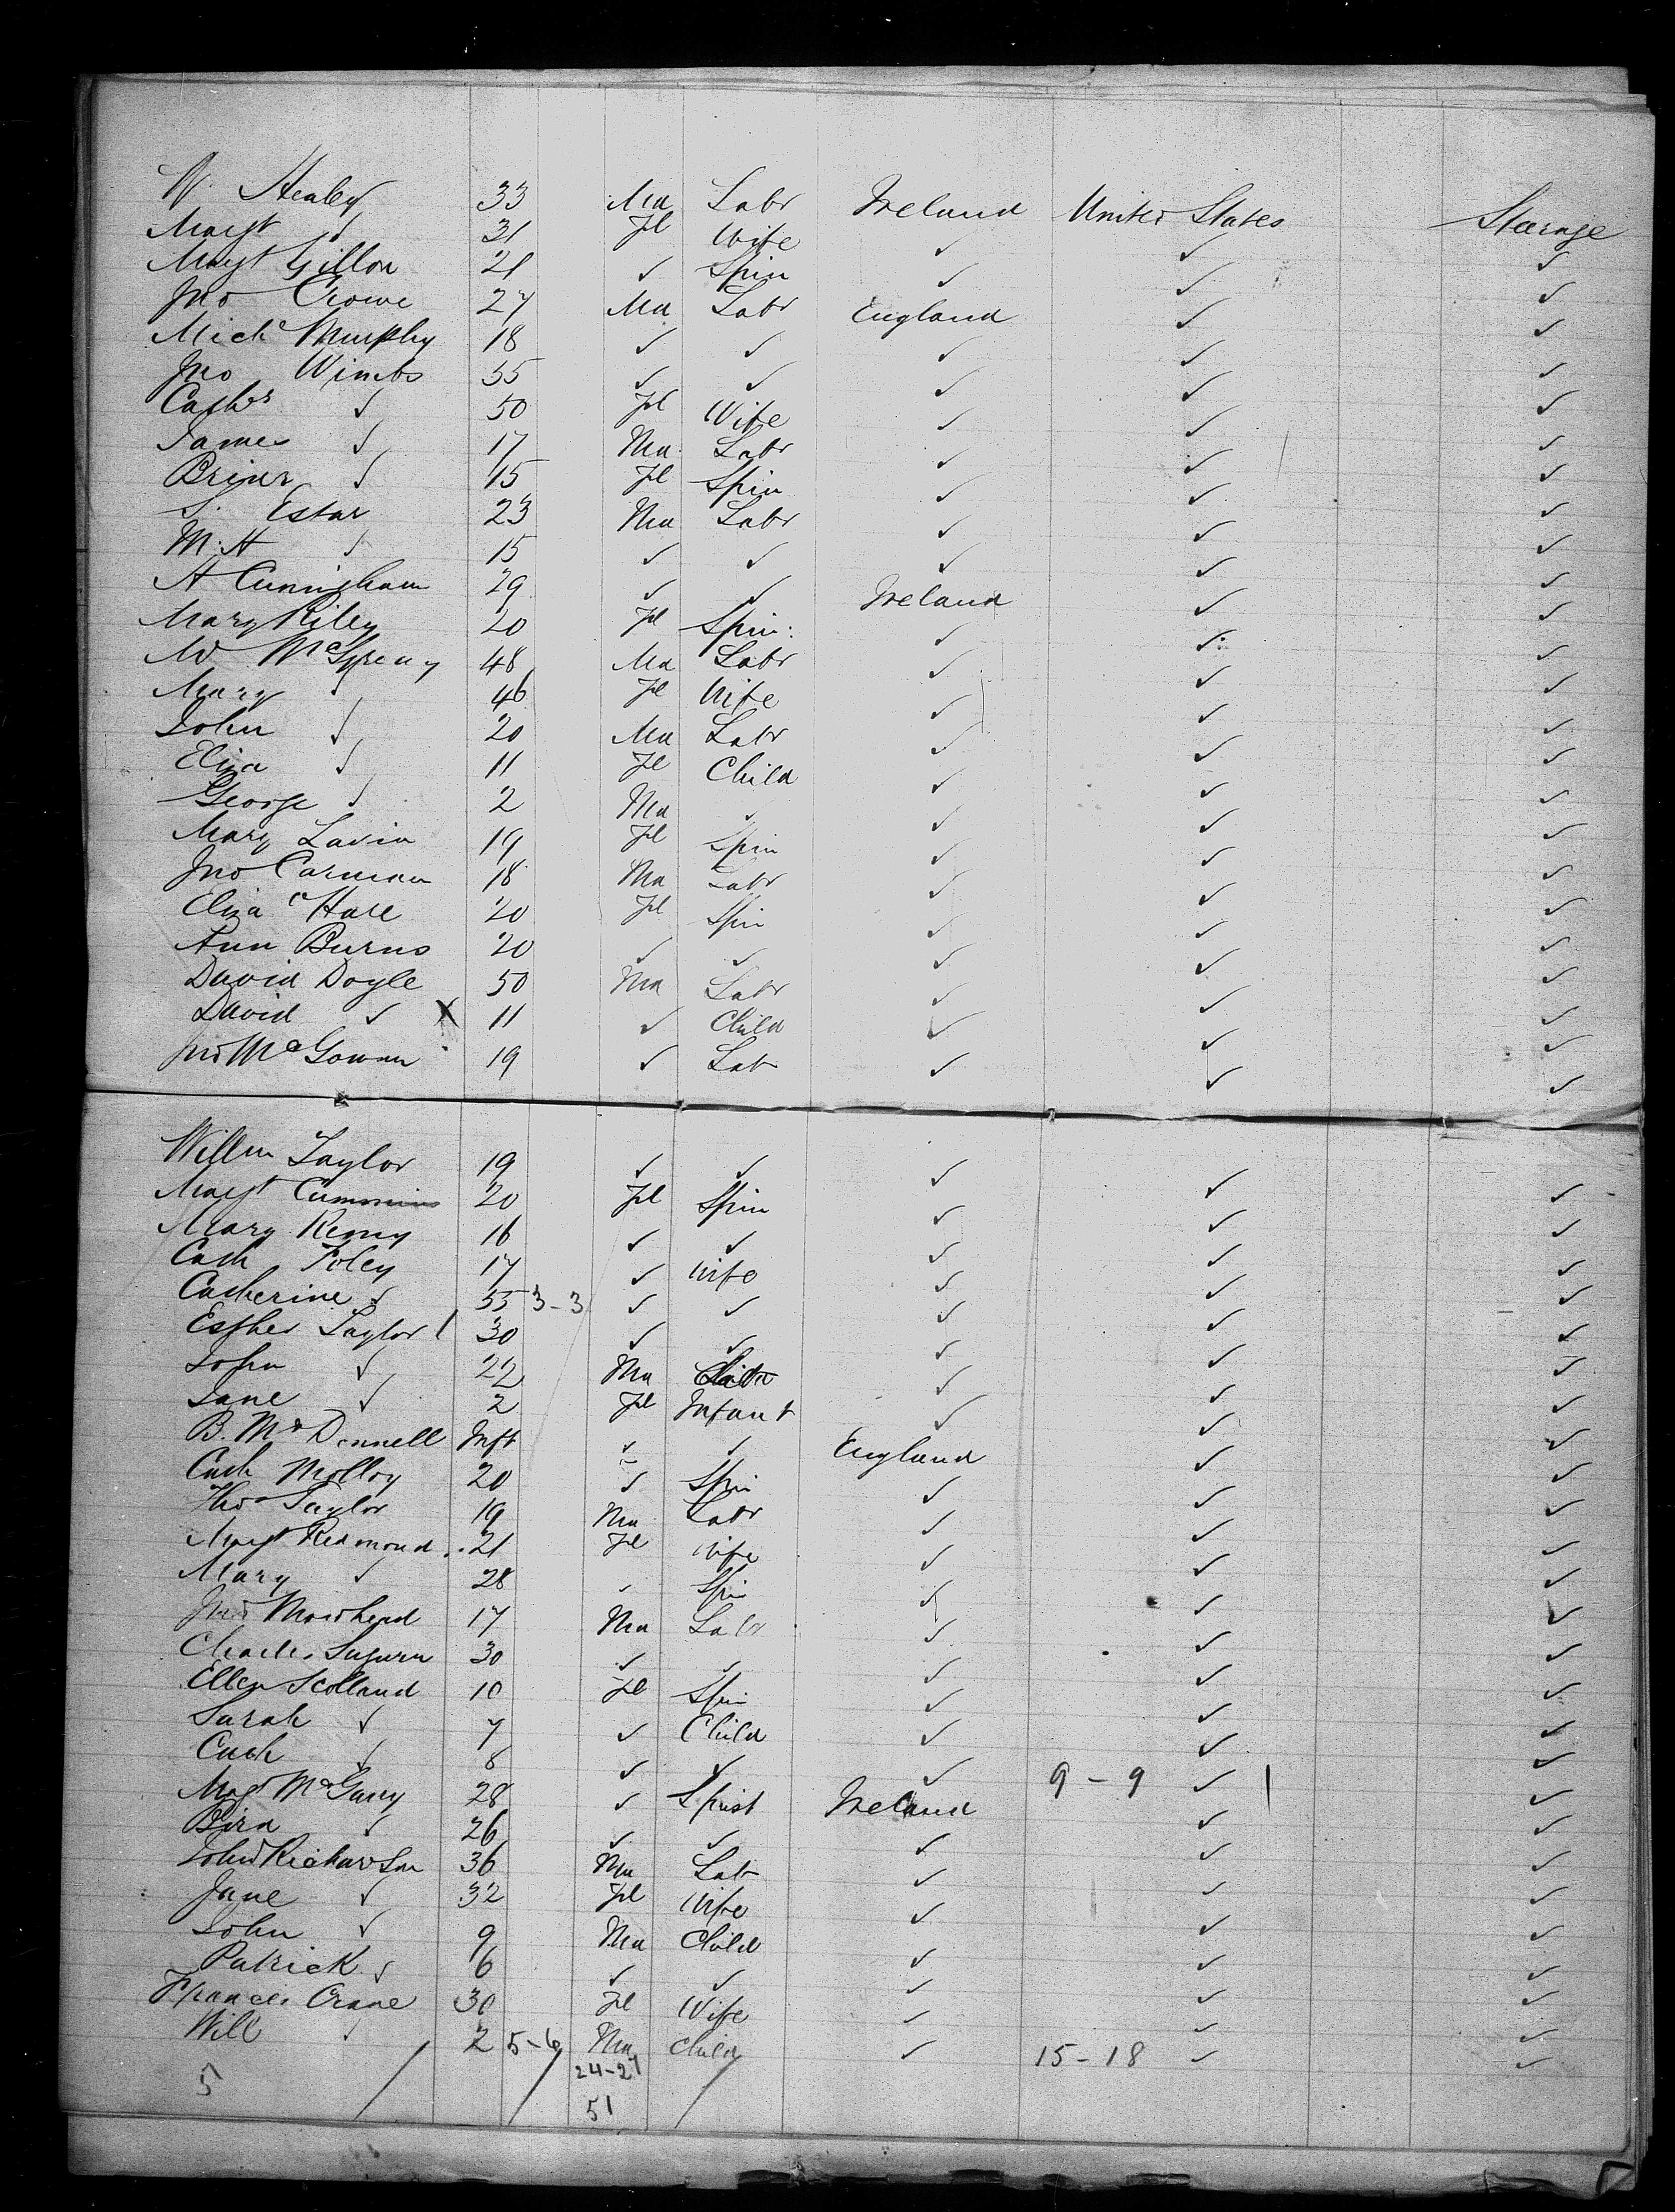 W. Healey 33 Ma Labr Ireland United States Steerage
Margt ✓ 31 Fl Wife ✓ ✓ ✓
Margt Gillon 21 ✓ Spin ✓ ✓ ✓
Jno Crowe 27 Ma Labr England ✓ ✓
Mich Murphy 18 ✓ ✓ ✓ ✓ ✓
Jno Wimbs 55 ✓ ✓ ✓ ✓ ✓
Cath ✓ 50 Fl Wife ✓ ✓ ✓
James ✓ 17 Ma Labr ✓ ✓ ✓
✓ 15 Fl Spin ✓ ✓ ✓
S. Estar 23 Ma Labr ✓ ✓ ✓
M. H ✓ 15 ✓ ✓ ✓ ✓ ✓
A Cunningham 29 ✓ ✓ Ireland ✓ ✓
Mary Riley 20 Fl Spin ✓ ✓ ✓
W 48 Ma Labr ✓ ✓ ✓
Mary ✓ 46 Fl Wife ✓ ✓ ✓
John ✓ 20 Ma Labr ✓ ✓ ✓
Eliza ✓ 11 Fl Child ✓ ✓ ✓
George ✓ 2 Ma ✓ ✓ ✓ ✓
Mary Lavin 19 Fl Spin ✓ ✓ ✓
Jno Carman 18 Ma Labr ✓ ✓ ✓
Eliza Hare 20 Fl Spin ✓ ✓ ✓
Ann Burns 20 ✓ ✓ ✓ ✓ ✓
David Doyle 50 Ma Labr ✓ ✓ ✓
David ✓ X 11 ✓ Child ✓ ✓ ✓
Jno McGowan 19 ✓ Lab ✓ ✓ ✓
Willm Taylor 19 ✓ ✓ ✓ ✓ ✓
Margt Cummins 20 Fl Spin ✓ ✓ ✓
Mary Kenny 16 ✓ ✓ ✓ ✓ ✓
Cath Foley 17 ✓ Wife ✓ ✓ ✓
Catherine ✓ 55 3-3 ✓ ✓ ✓ ✓ ✓
Esther Taylor 30 ✓ ✓ ✓ ✓ ✓
John ✓ 22 Ma ✓ ✓ ✓
Jane ✓ 2 Fl Infant ✓ ✓ ✓
B. McDonnell Inft ✓ ✓ England ✓ ✓
Cath Molloy 20 ✓ Spin ✓ ✓ ✓
Thos Taylor 19 Ma Labr ✓ ✓ ✓
Margt Redmond 21 Fl Wife ✓ ✓ ✓
Mary ✓ 28 ✓ Spin ✓ ✓ ✓
Jno Morehead 17 Ma Labr ✓ ✓ ✓
Charles 30 ✓ ✓ ✓ ✓ ✓
Ellen Scolland 10 Fl Spin ✓ ✓ ✓
Sarah ✓ 7 ✓ Child ✓ ✓ ✓
Cath ✓ 8 ✓ ✓ ✓ 9-9 ✓ ✓
Magt McGarry 28 ✓ Spinst Ireland ✓ ✓
✓ 26 ✓ ✓ ✓ ✓ ✓
John Richardson 36 Ma Lab ✓ ✓ ✓
Jane ✓ 32 Fl Wife ✓ ✓ ✓
John ✓ 9 Ma Child ✓ ✓ ✓
Patrick ✓ 6 ✓ ✓ ✓ ✓ ✓
Frances Crane 30 Fl Wife ✓ ✓ ✓
Will ✓ 2 5-6 Ma Child ✓ 15-18 ✓ ✓
5 24-27
51